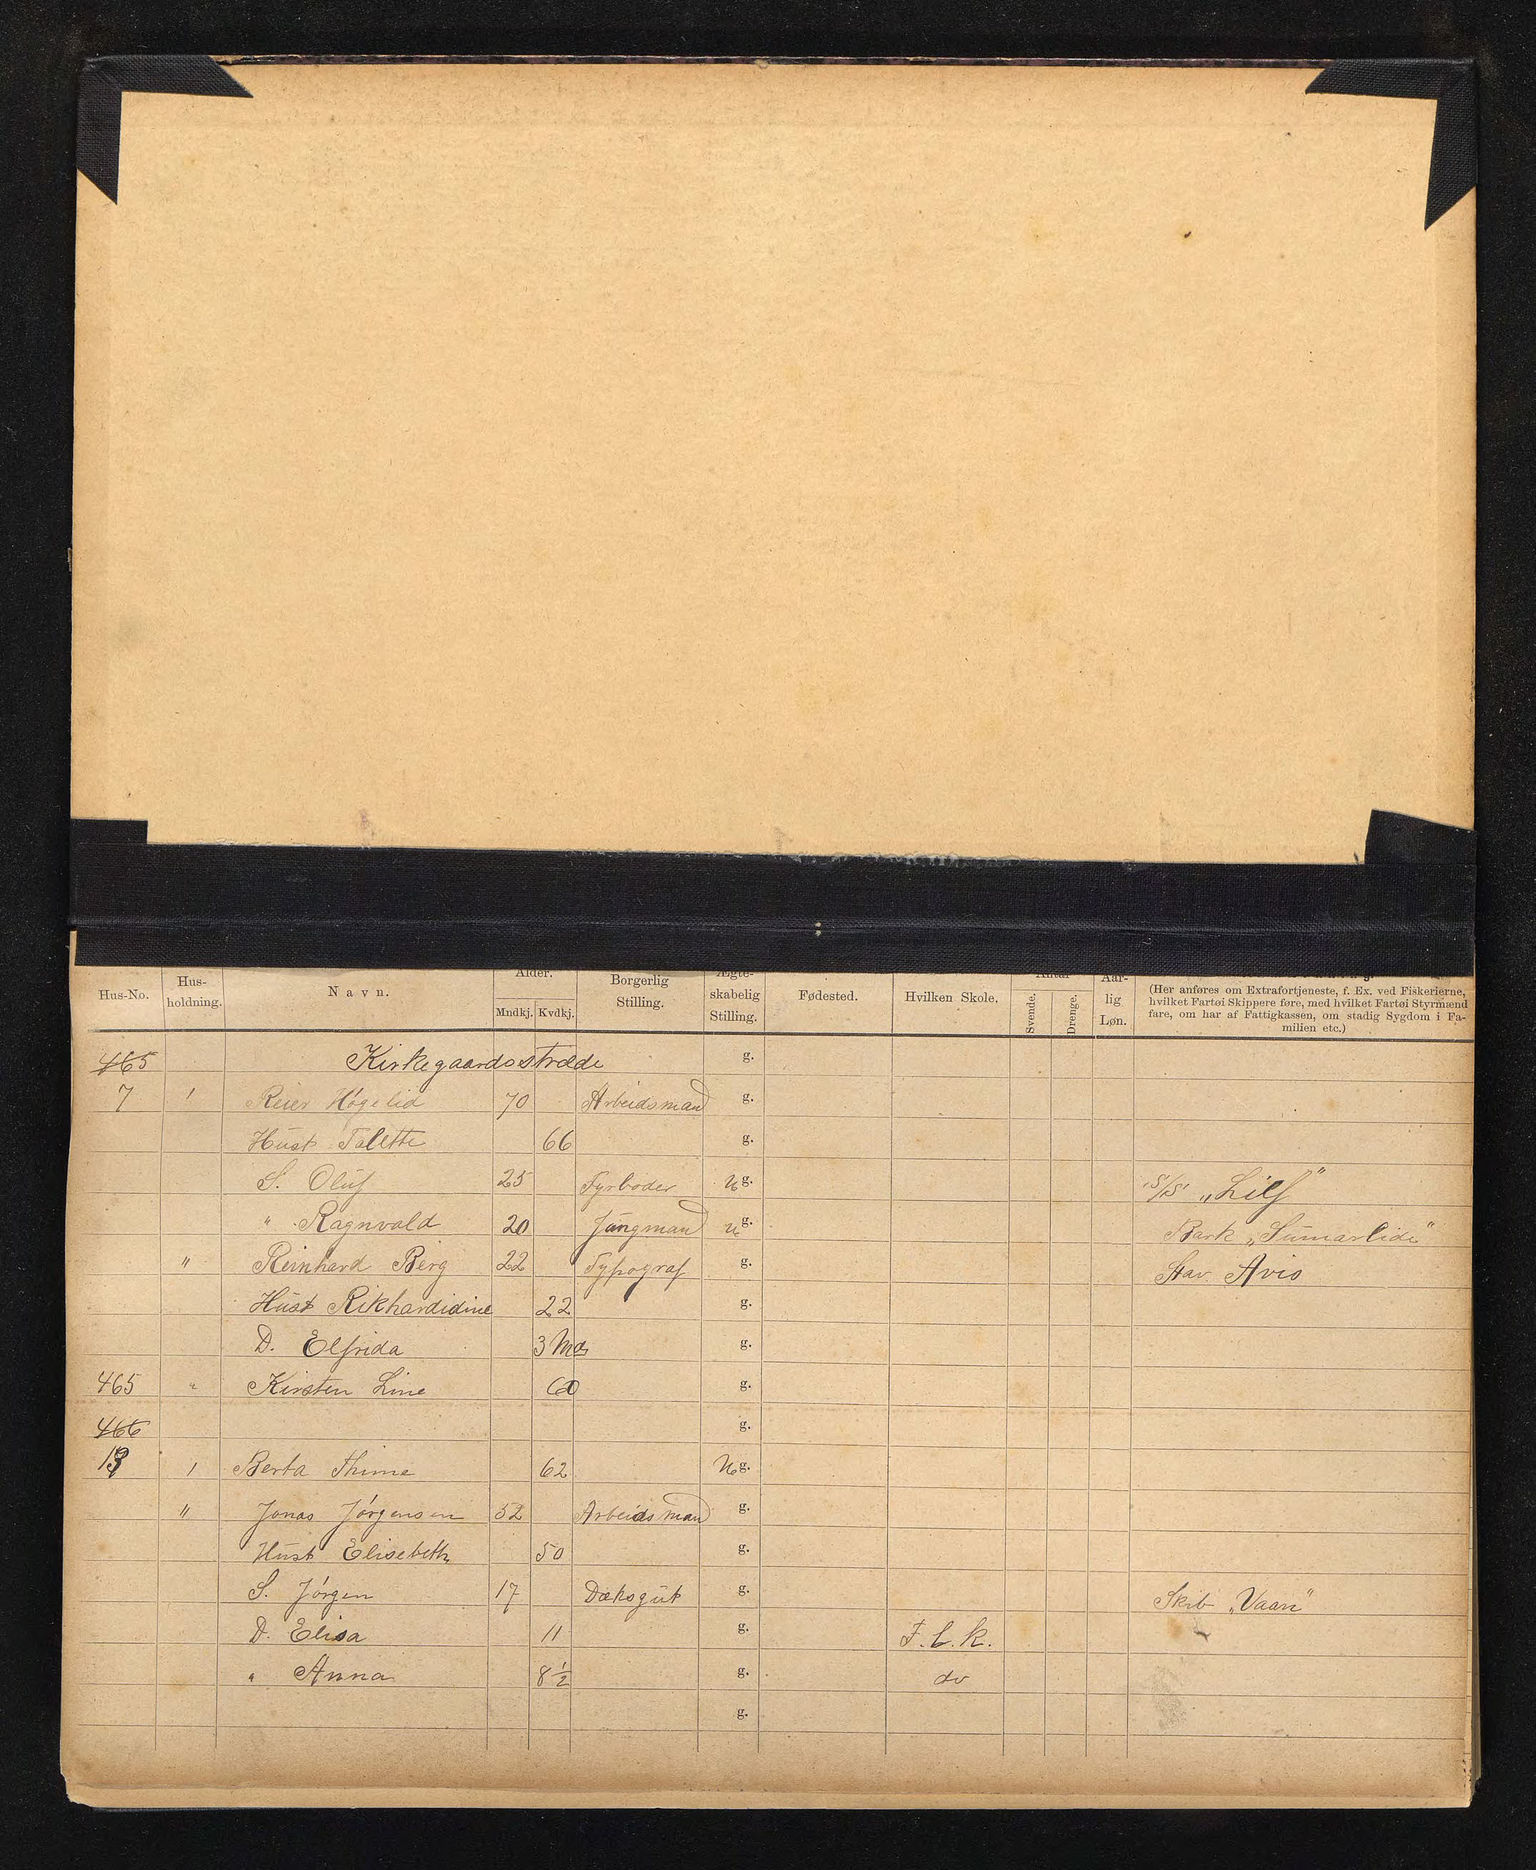 Hus-No. Hus-holdning. Navn. Alder. Mndkj. Kvdkj. Borgerlig Stilling. Ægte-skabelig Stilling. Fødested. Hvilken Skole. Antal Svende. Drenge. Aar-lig Løn. (Her anføres om Extrafortjeneste, f. Ex. ved Fiskerierne, hvilket Fartøi Skippere føre, med hvilket Fartøi Styrmænd fare, om har af Fattigkassen, om stadig Sygdom i Fa-milien etc.)
465 Kirkegaardsstræde g.
7 1 Reier Høgelid 70 Arbeidsmand g.
Hust Talette 66 g.
S. Oluf 25 Fyrbøder Ug. S/S "Lilf"
" Ragnvald 20 Jungmand Ug. Bark "Sumarlide"
" Reinhard Berg 22 Typograf g. Stav. Avis
Hust Rikhardidine 22 g.
D. Elfrida 3 Md g.
465 " Kirsten Line 60 g.
466 g.
13 1 Berta Thime 62 Ug.
" Jonas Jørgensen 52 Arbeidsmand g.
Hust Elisebeth 50 g.
S. Jørgen 17 Dæksgut g. Skib "Vaan"
D. Elisa 11 g. F.b.k.
" Anna 8½ g. do
g.